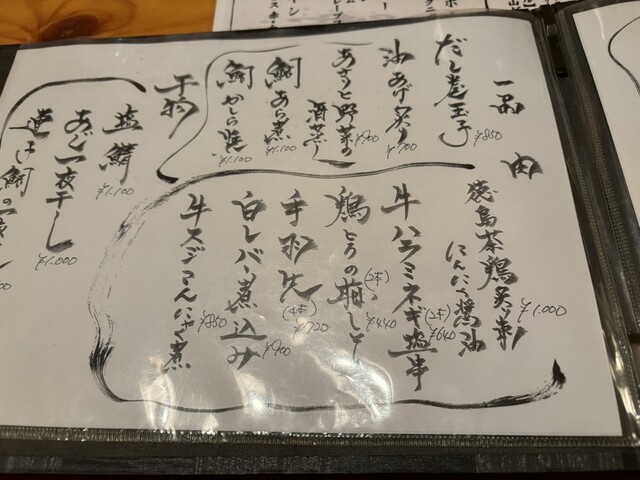 一品
だし巻玉子
¥850
油あげ炙り
¥700
あさりと野菜の
酒蒸し
¥900
鯛あら煮
¥1.100
鯛かしら塩
¥1.100
干物
塩鯖
¥1.100
あご一夜干し
¥1.000
肉
徳島茶鶏炙り刺
¥1.000
にんにく醤油
牛ハラミネギ塩串
(2本)
¥640
鶏とろの梅しそ
(2本)
¥440
手羽先
(4本)
¥720
白レバー煮込み
¥900
牛スジこんにゃく煮
¥850